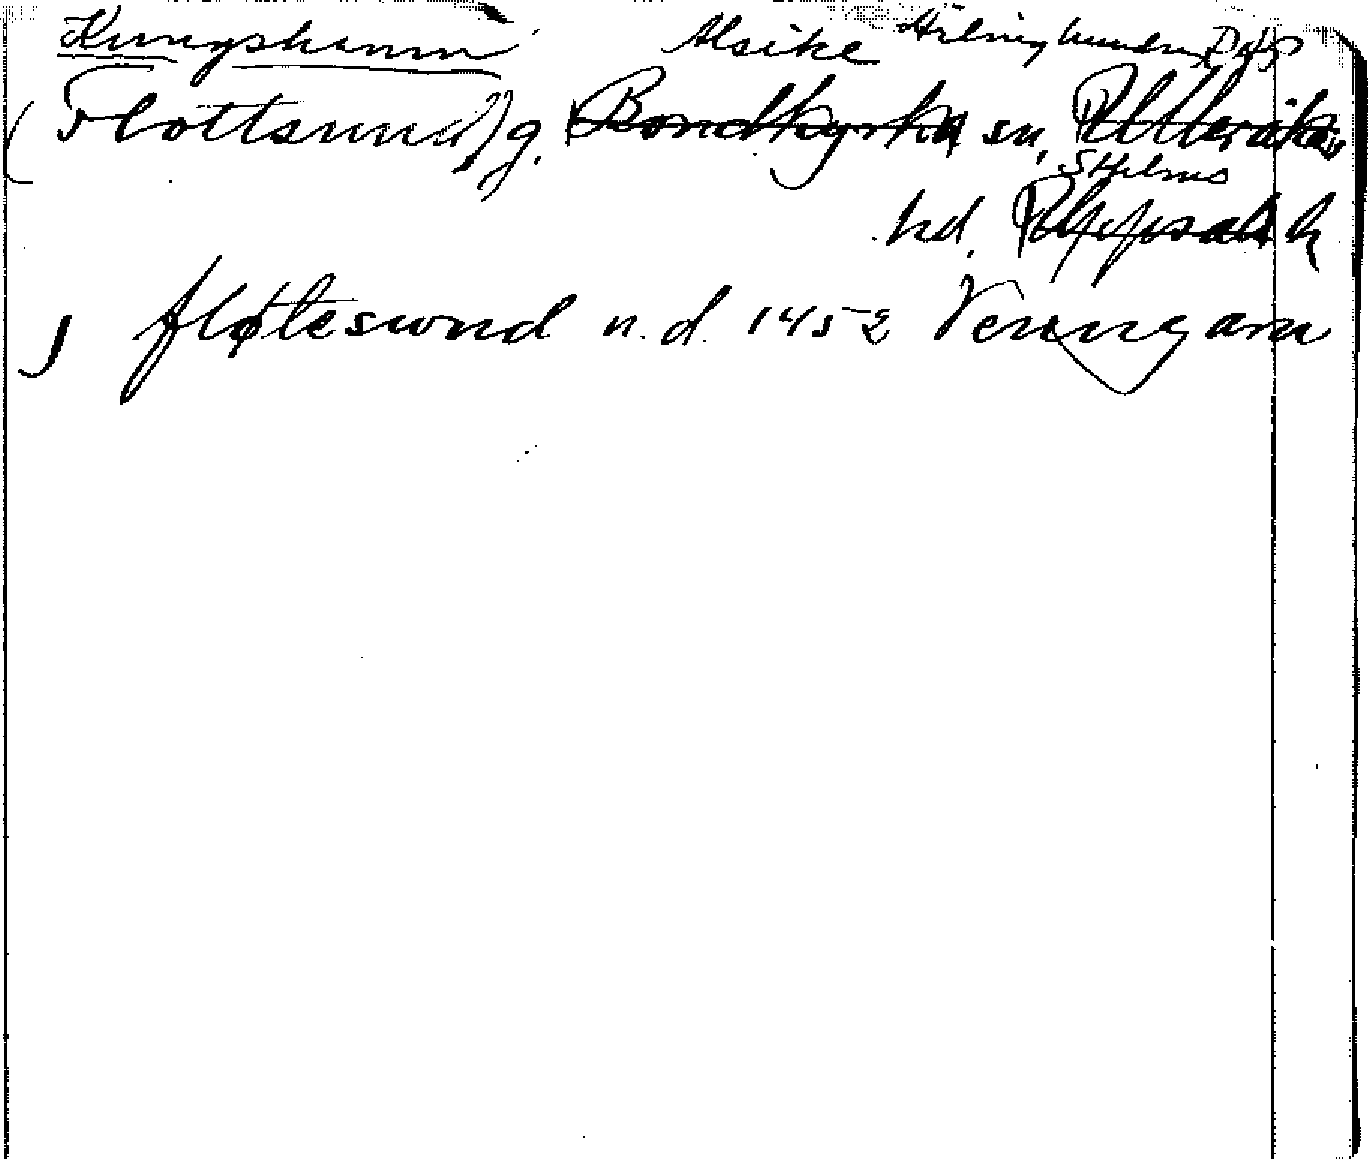 Kungshamn Alsike Ärlinghundra
(Flottsund) g. Bondkyrka sn, Ulleråkers
Sthlms
hd, Uppsala
j fløteswnd n.d. 1452 Venngarn